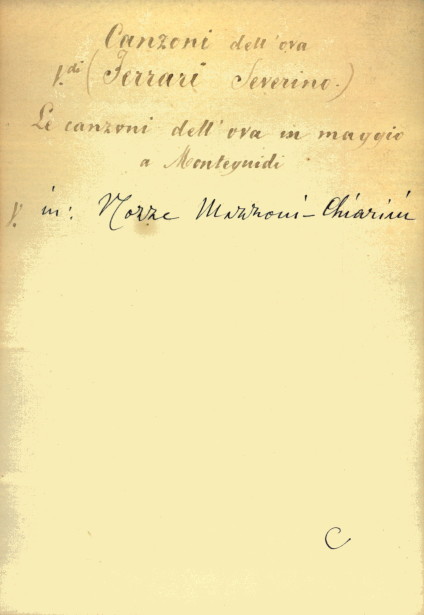 Canzoni dell'ova
V. di (Ferrari Severino.)
Le canzoni dell'ova in maggio
a Monteguidi
V. in: Nozze Mazzoni-Chiarini
C